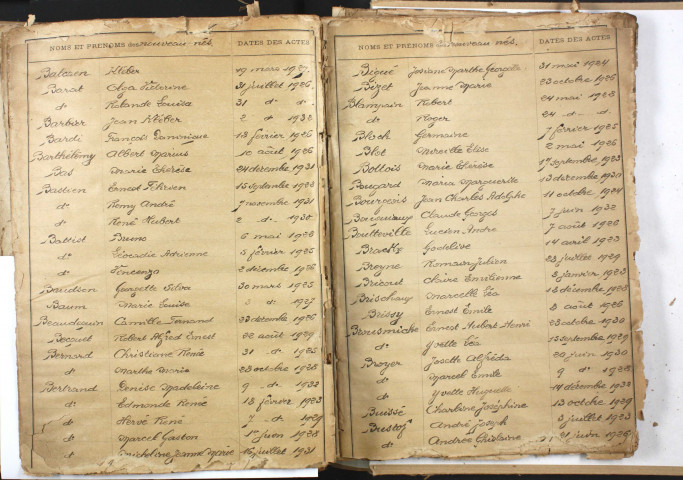 NOMS ET PRENOMS des nouveau nés. DATES DES ACTES
Balozen Kléber 19 mars 1927
Barat Olga Victorine 31 juillet 1926
dt Rolande Louisa 31 dt dt
Barbier Jean Kléber 2 dt 1932
Bardi François Dominique 18 février 1926
Barthélémy Albert Marius 10 août 1926
Bas Marie Thérèse 24 décembre 1931
Bastien Ernest 15 septembre 1923
dt Rémy André 7 novembre 1931
dt René Hubert 2 dt 1930
Battist Bruno 6 mai 1928
dt Léocadie Adrienne 5 février 1925
dt Vincenzo 2 décembre 1926
Baudson Georgette Silva 30 mars 1925
Baum Marie Louise dt 1927
Beaudequin Camille Fernand 23 décembre 1926
Becquet Robert Alfred Ernest 22 août 1929
Bernard Christiane Renée 31 dt 1925
dt Marthe Maria 28 octobre 1926
Bertrand Denise Madeleine 9 dt 1932
dt Edmonde Renée 18 février 1923
dt Hervé René 7 dt 1929
dt Marcel Gaston 1er juin 1928
dt Micheline Jeanne Marie 16 juillet 1931
NOMS ET PRENOMS des nouveau nés. DATES DES ACTES
Bigué Josiane Marthe Georgette 31 mai 1924
Bizet Jeanne Marie 23 octobre 1926
Blampain Robert 24 mai 1923
dt Roger 24 dt dt
Bloch Germaine 7 février 1925
Blot Mireille Elise 2 mai 1926
Bollois Marie Thérèse 17 septembre 1923
Bougard Maria Marguerite 13 décembre 1930
Bourgeois Jean Charles Adolphe 11 octobre 1924
Bouquiaux Claude Georges 7 juin 1932
Boutteville Lucien André 7 août 1928
Bracke Godelieve 14 avril 1923
Breyne Romain Julien 23 juillet 1929
Bricout Claire Emilienne 3 janvier 1923
Brischoux Marcelle Léa 18 décembre 1928
Brissy Ernest Emile 8 août 1926
Brousmiche Ernest Hubert Henri 23 octobre 1930
dt Yvette Léa 15 septembre 1929
Broyer Josette Alfréda 20 juin 1930
dt Marcel Emile 9 dt 1928
dt Yvette Huguette 14 décembre 1932
Buisse Charline Joséphine 13 octobre 1929
Bustof André Joseph 3 juillet 1923
dt Andrée Ghislaine 21 juin 1926